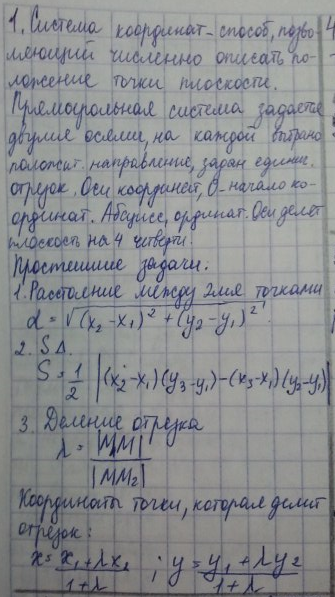 1. Система координат - способ, позво-
ляющий численно описать по-
ложение точки плоскости.
Прямоугольная система задается
двумя осями, на каждой выбрано
положит. направление, задан единич.
отрезок. Оси координат, О - начало ко-
ординат. Абсцисс, ординат. Оси делят
плоскость на 4 четверти.
Простейшие задачи:
1. Расстояние между 2мя точками
d = √(x₂ - x₁)² + (y₂ - y₁)²
2. S Δ.
S = 1/2 |(x₂ - x₁)(y₃ - y₁) - (x₃ - x₁)(y₂ - y₁)|
3. Деление отрезка
λ = |M₁M| / |MM₂|
Координаты точки, которая делит
отрезок:
x = x₁ + λx₂ / 1 + λ ; y = y₁ + λy₂ / 1 + λ